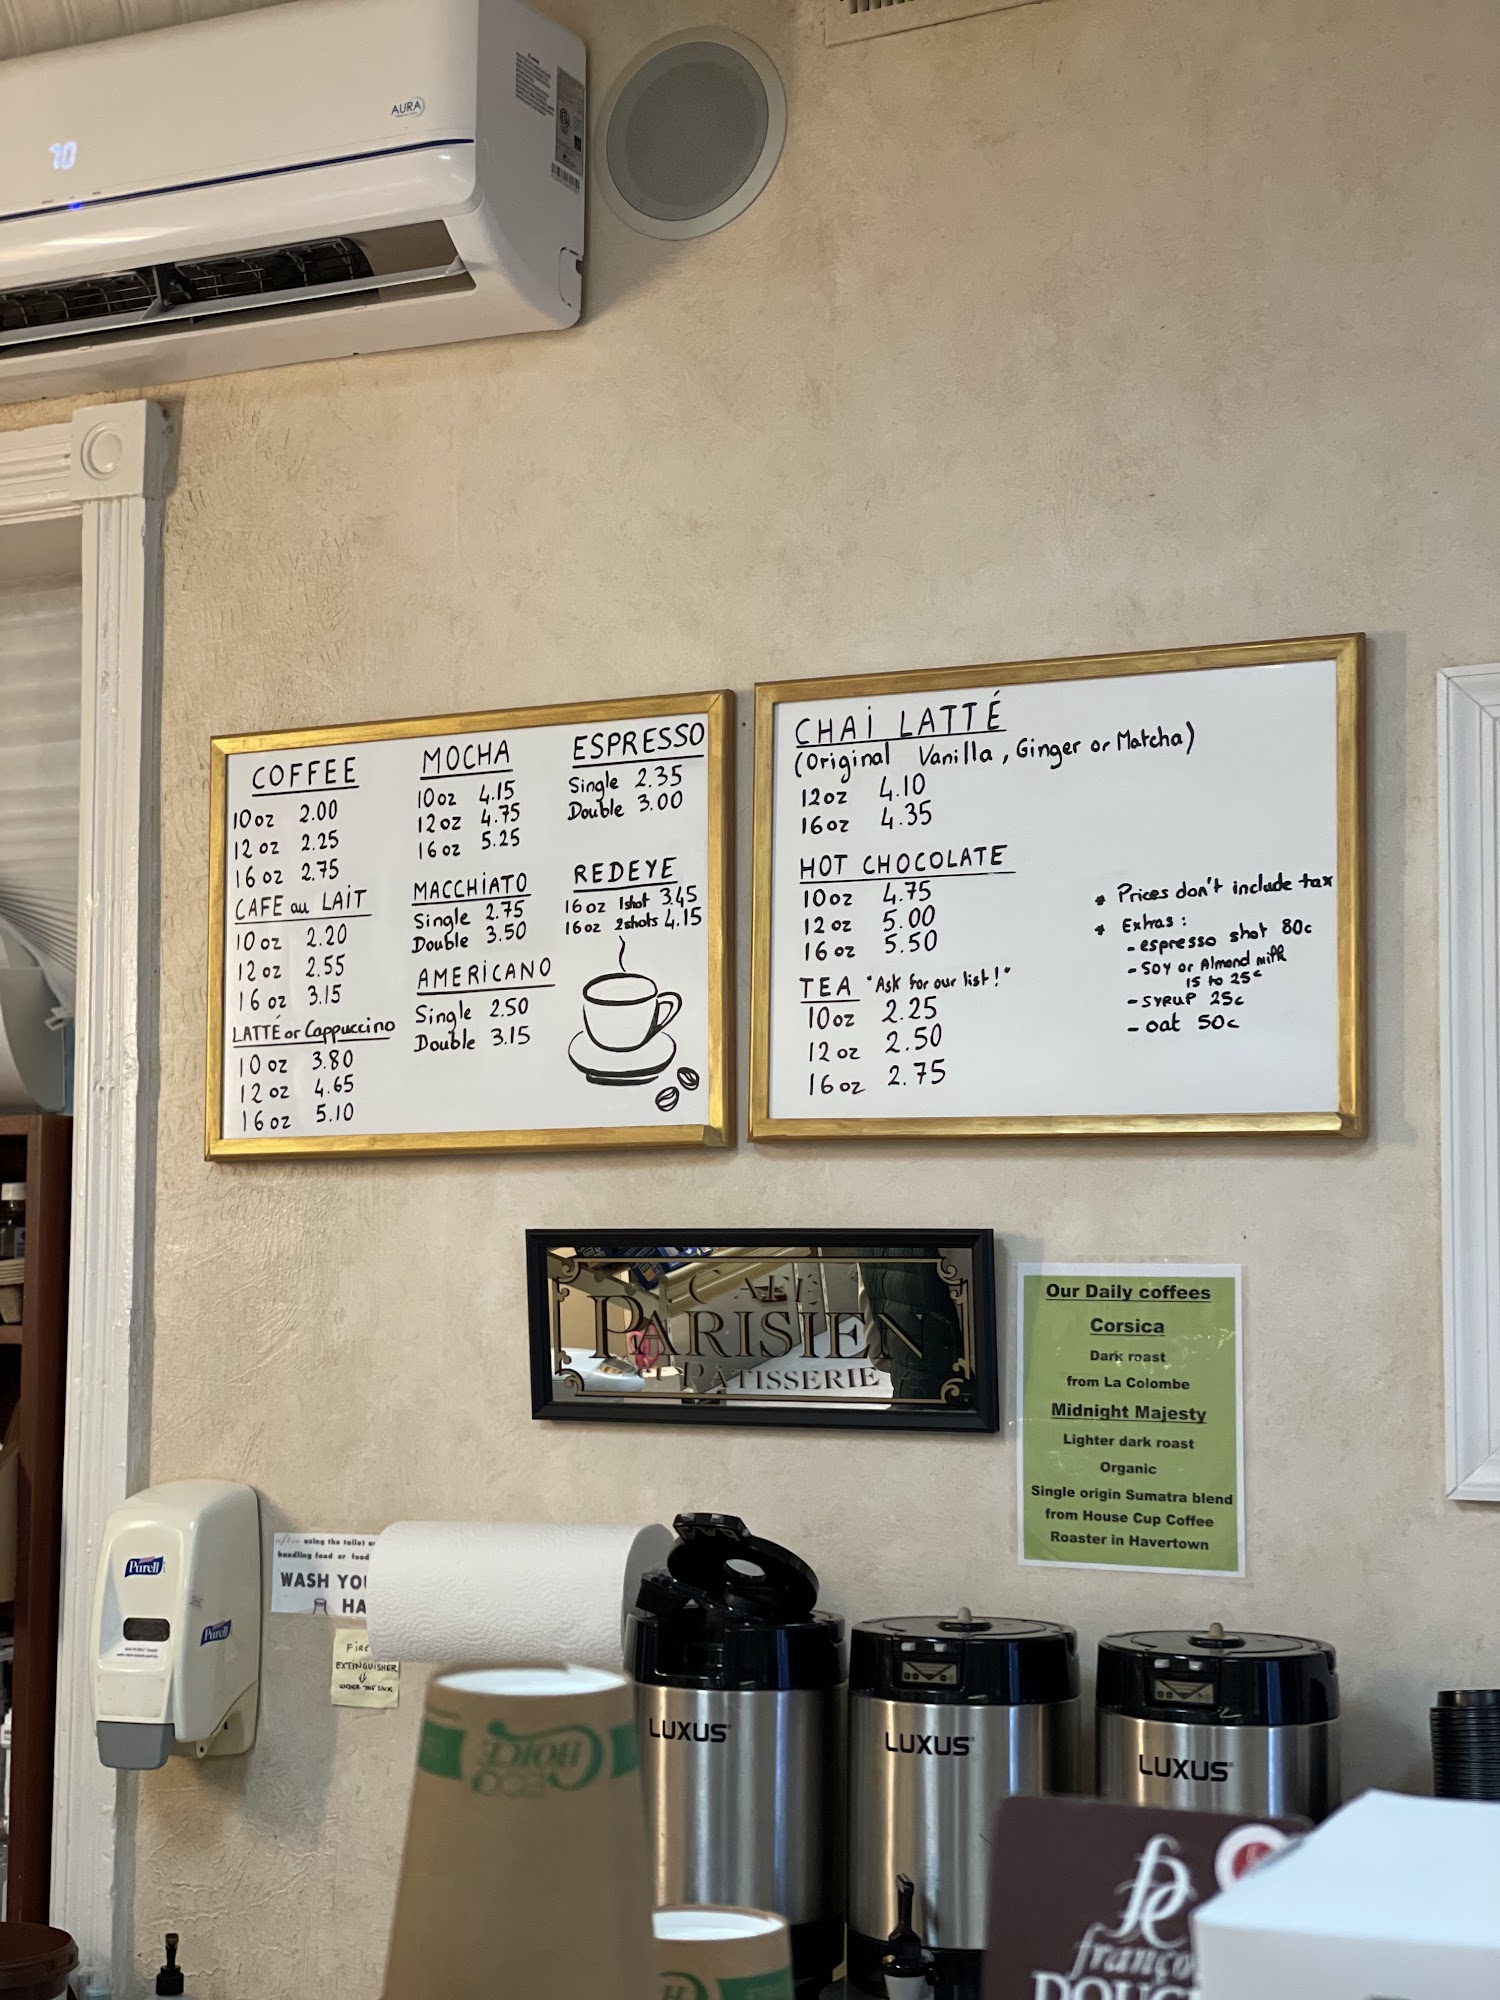 AURA
70
COFFEE
10oz 2.00
12oz 2.25
16oz 2.75
CAFE au LAIT
10oz 2.20
12oz 2.55
16oz 3.15
LATTÉ or Cappuccino
10oz 3.80
12oz 4.65
16oz 5.10
MOCHA
10oz 4.15
12oz 4.75
16oz 5.25
MACCHIATO
Single 2.75
Double 3.50
AMERICANO
Single 2.50
Double 3.15
ESPRESSO
Single 2.35
Double 3.00
REDEYE
16oz 1shot 3.45
16oz 2shots 4.15
CHAI LATTÉ
(Original Vanilla, Ginger or Matcha)
12oz 4.10
16oz 4.35
HOT CHOCOLATE
10oz 4.75
12oz 5.00
16oz 5.50
TEA "Ask for our list!"
10oz 2.25
12oz 2.50
16oz 2.75
* Prices don't include tax
* Extras:
- espresso shot 80c
- SOY or Almond milk
15 to 25c
- SYRUP 25c
- oat 50c
CAFÉ
PARISIEN
PATISSERIE
Our Daily coffees
Corsica
Dark roast
from La Colombe
Midnight Majesty
Lighter dark roast
Organic
Single origin Sumatra blend
from House Cup Coffee
Roaster in Havertown
Purell
Purell
after using the toilet or
handling food or food
WASH YOU
HA
FIRE
EXTINGUISHER
UNDER THE SINK
LUXUS
LUXUS
LUXUS
ECO
CHOICE
franço
DOUC